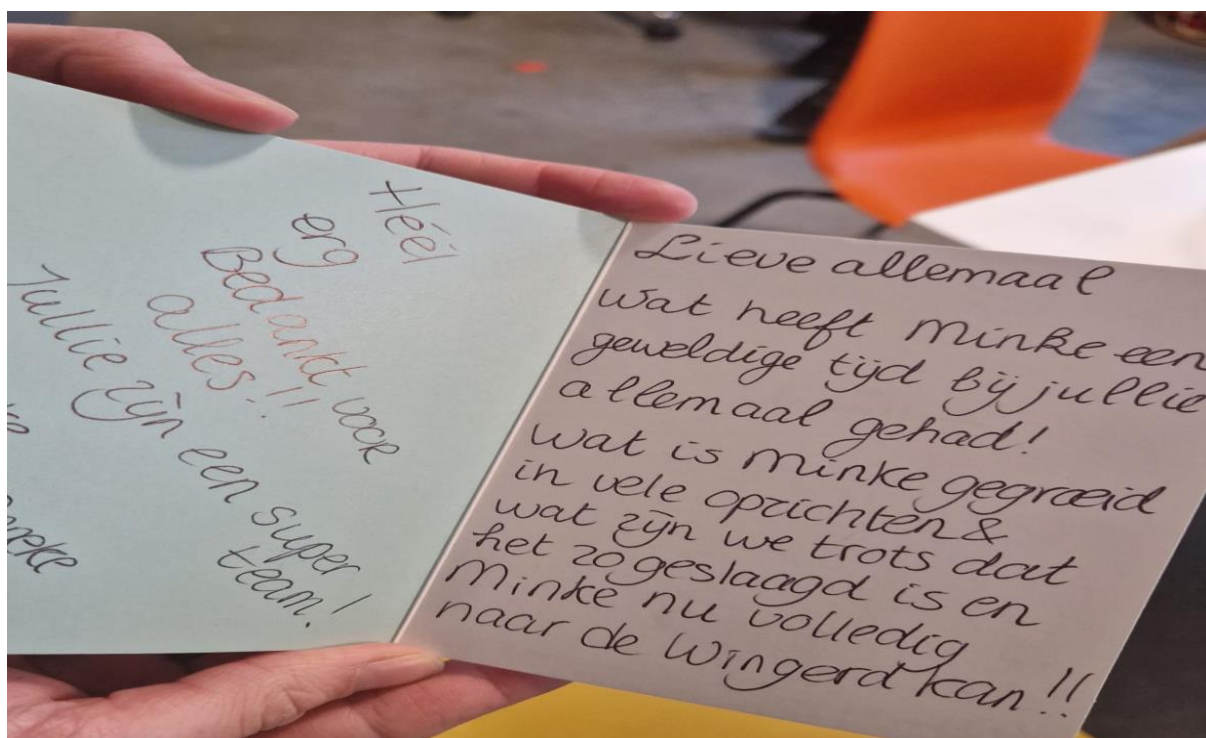 Héél
erg
Bedankt voor
alles!!
Jullie zijn een super
team!
Lieve allemaal
Wat heeft Minke een
geweldige tijd bij jullie
allemaal gehad!
Wat is Minke gegroeid
in vele opzichten &
wat zijn we trots dat
het zo geslaagd is en
Minke nu volledig
naar de Wingerd kan!!